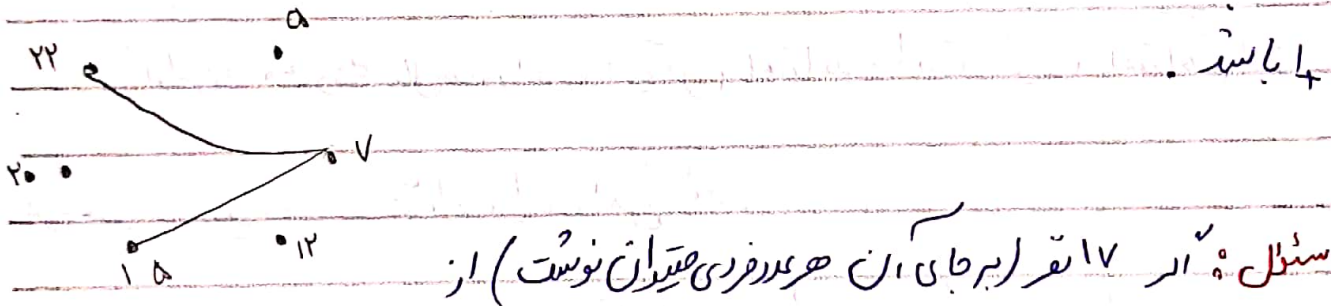 باشد.
۵
۲۲
۷
۲۰
۱۵
۱۲
سئول: اگر ۱۷ نفر (به جای آن هر عدد فردی میتوان نوشت) از